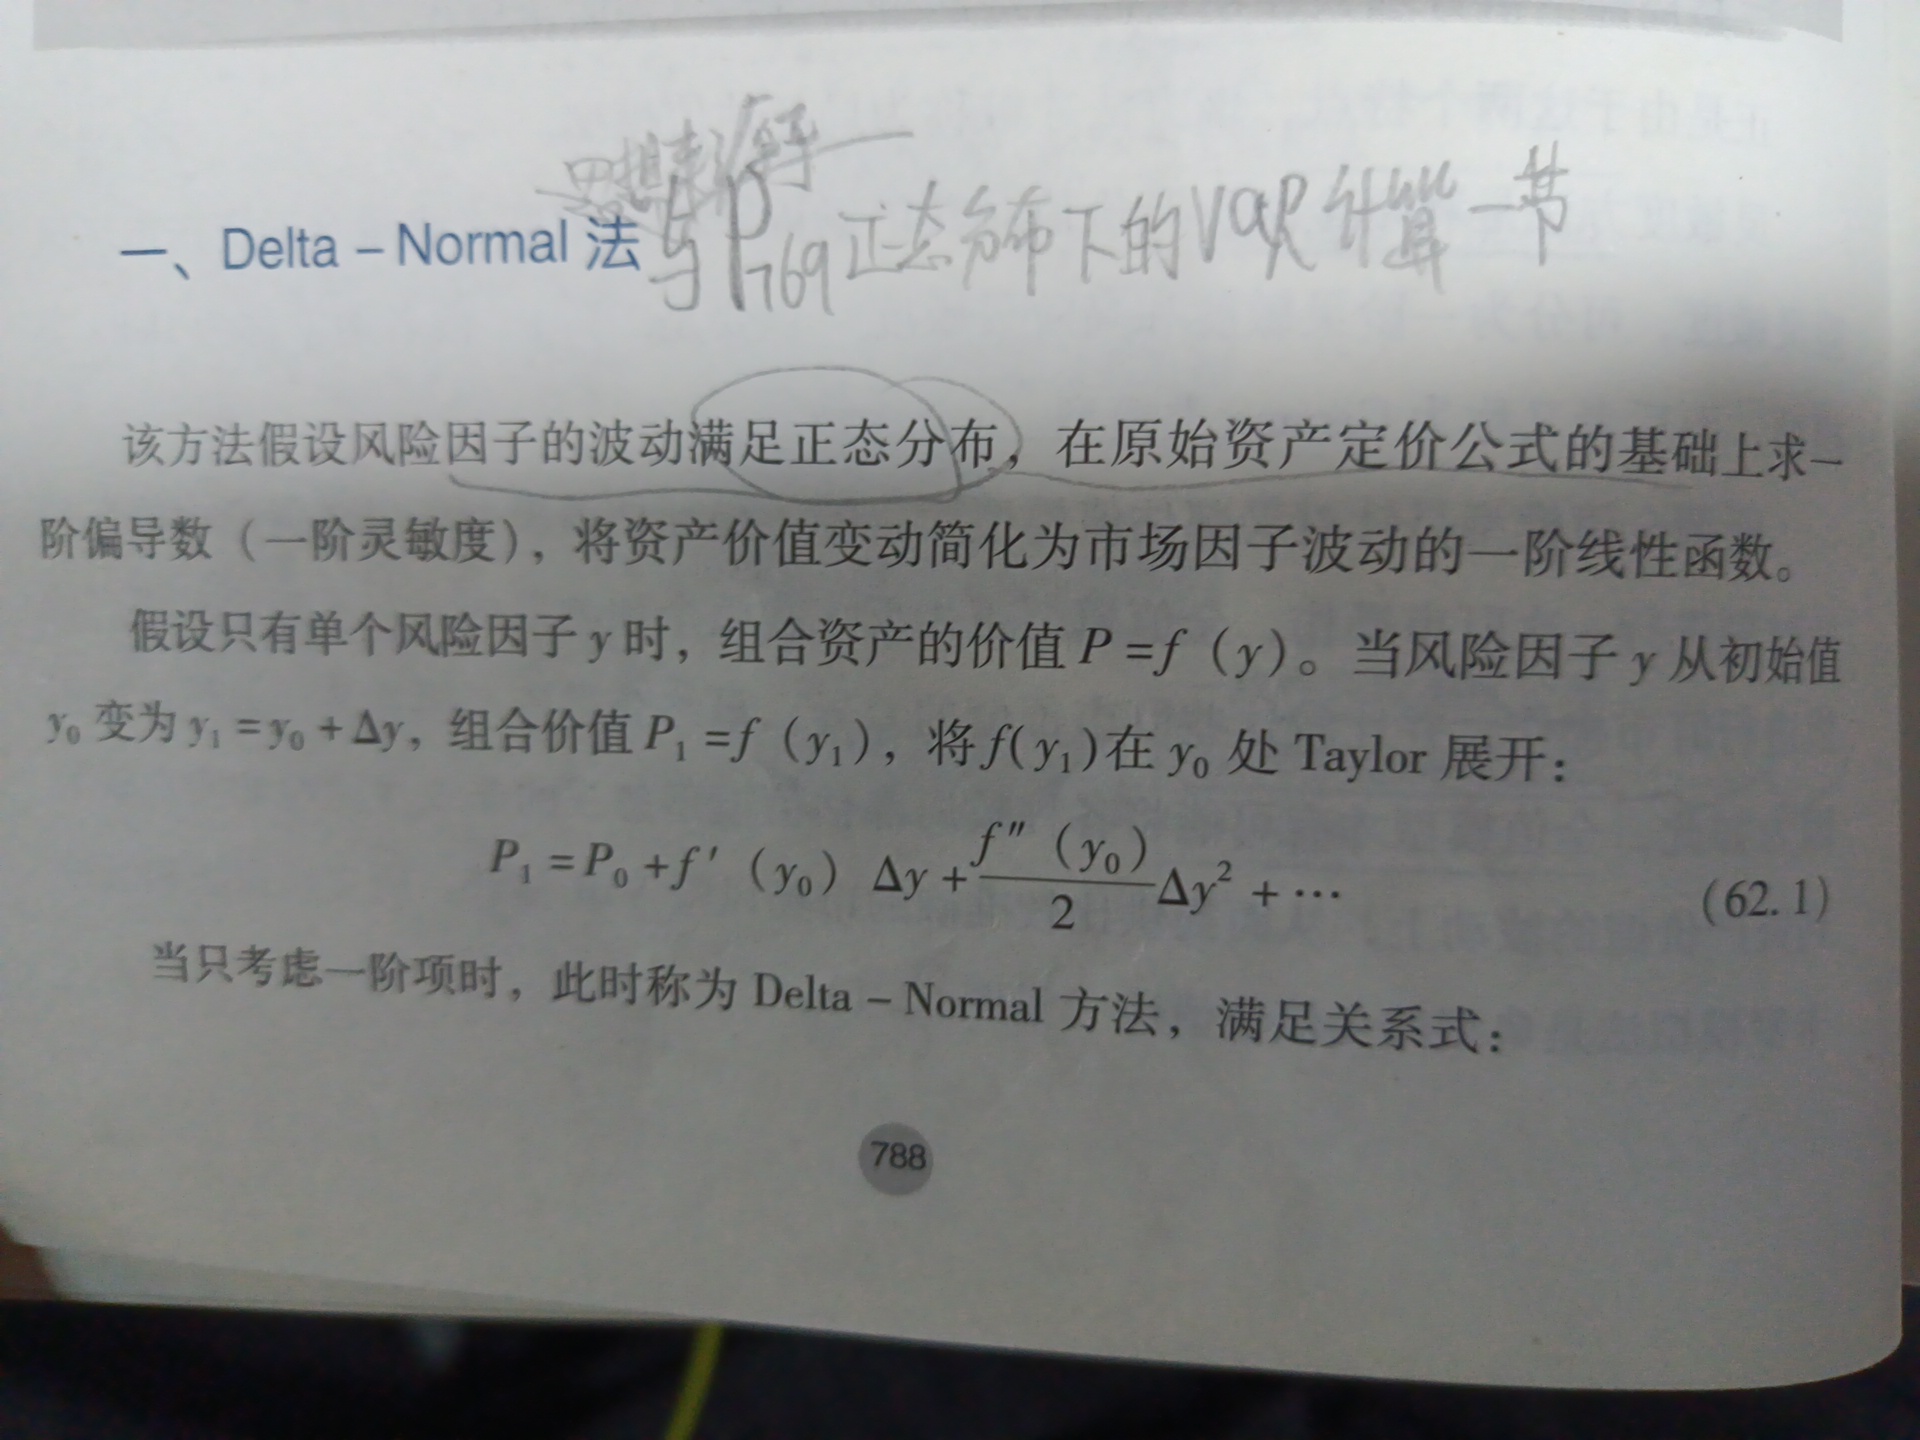 思想来源于
一、Delta – Normal 法 与P769正态分布下的VaR计算一节
该方法假设风险因子的波动满足正态分布，在原始资产定价公式的基础上求一
阶偏导数（一阶灵敏度），将资产价值变动简化为市场因子波动的一阶线性函数。
假设只有单个风险因子 y 时，组合资产的价值 P =f（y）。当风险因子 y 从初始值
y₀ 变为 y₁ =y₀ +Δy，组合价值 P₁ =f（y₁），将 f(y₁)在 y₀ 处 Taylor 展开：
P₁ =P₀ +f′（y₀）Δy +f″（y₀）/2 Δy² + ⋯ （62.1）
当只考虑一阶项时，此时称为 Delta – Normal 方法，满足关系式：
788